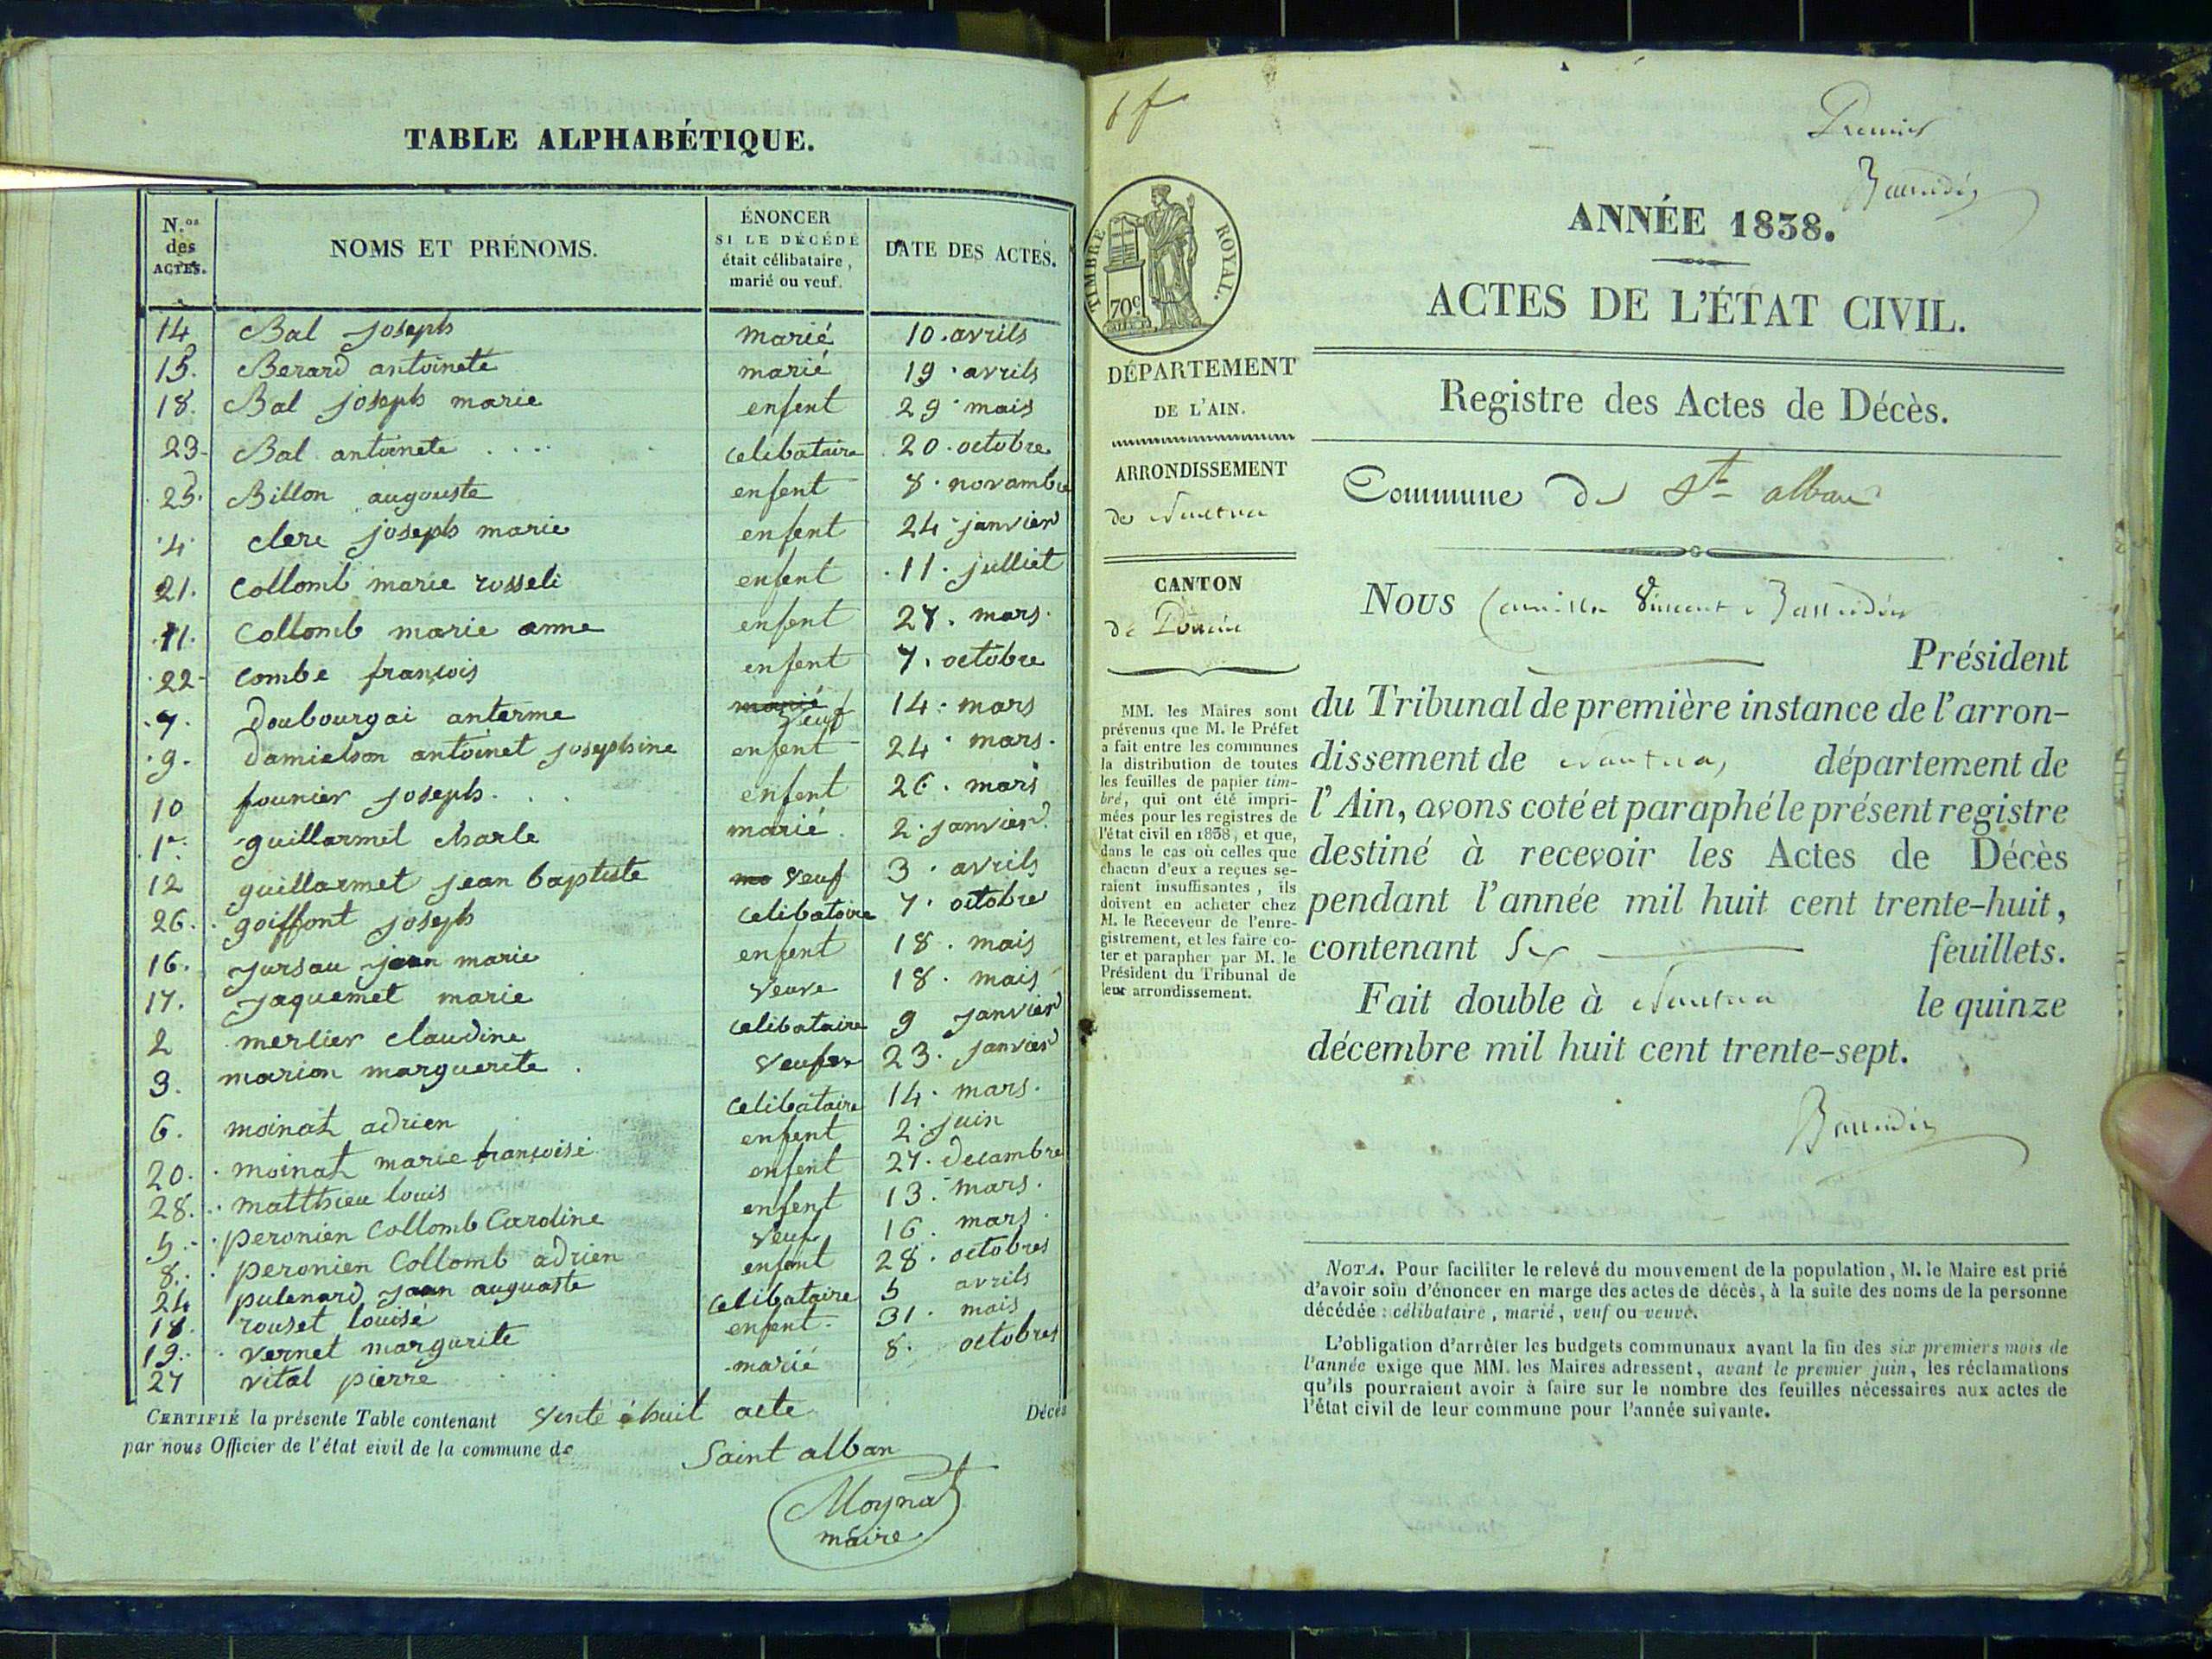 TABLE ALPHABÉTIQUE.
N.os des ACTES. NOMS ET PRÉNOMS. ÉNONCER SI LE DÉCÉDÉ était célibataire, marié ou veuf. DATE DES ACTES.
14 Bal joseph marié 10. avrils
15. Berard antoinete marié 19. avrils
18. Bal joseph marie enfent 29. mais
23. Bal antoinete .... celibataire 20. octobre
25. Billon augouste enfent 8. novambre
4. clere joseph marie enfent 24. janvier
21. Collomb marie rosseli enfent 11. julliet
11. Collomb marie anne enfent 27. mars.
22 Combe françois enfent 7. octobre
7. doubourgai anterme marié veuf 14. mars
9. damielson antoinet josephine enfent 24. mars.
10 founier joseph. enfent 26. mars
1er guillarmet charle marié. 2. janvier.
12 guillarmet jean baptiste ma veuf 3. avrils
26. goiffont joseph celibatoire 7. octobre
16. jursau jean marie enfent 18. mais
17. jaquemet marie veuve 18. mais
2 merlier claudine celibataire 9 janvier
3. marion marguerite. 23. janvier
6. moinat adrien celibataire 14. mars.
20. moinat marie françoise enfent 2. juin
28. matthieu louis enfent 27. decambre
5. peronien Collomb Caroline enfent 13. mars.
8. peronien Collomb adrien veuf 16. mars.
24 pulenard jean auguaste enfant 28. octobres
18. rouset louise celibataire 5 avrils
19. vernet margurite enfent. 31. mais
27 vital pierre marié 8. octobres
CERTIFIÉ la présente Table contenant vente é huit acte Décès
par nous Officier de l'état civil de la commune de Saint alban
Moynat
maire
1f
Premier
ANNÉE 1838.
ACTES DE L'ÉTAT CIVIL.
TIMBRE ROYAL.
70c
DÉPARTEMENT
DE L'AIN.
ARRONDISSEMENT
de Nantua
CANTON
de Poncin
MM. les Maires sont
prévenus que M. le Préfet
a fait entre les communes
la distribution de toutes
les feuilles de papier tim-
bré, qui ont été impri-
mées pour les registres de
l'état civil en 1838, et que,
dans le cas où celles que
chacun d'eux a reçues se-
raient insuffisantes, ils
doivent en acheter chez
M. le Receveur de l'enre-
gistrement, et les faire co-
ter et parapher par M. le
Président du Tribunal de
leur arrondissement.
Registre des Actes de Décès.
Commune de St alban
Nous Camille Vincent
Président
du Tribunal de première instance de l'arron-
dissement de Nantua, département de
l'Ain, avons coté et paraphé le présent registre
destiné à recevoir les Actes de Décès
pendant l'année mil huit cent trente-huit,
contenant Six feuillets.
Fait double à Nantua le quinze
décembre mil huit cent trente-sept.
NOTA. Pour faciliter le relevé du mouvement de la population, M. le Maire est prié
d'avoir soin d'énoncer en marge des actes de décès, à la suite des noms de la personne
décédée : célibataire, marié, veuf ou veuve.
L'obligation d'arrêter les budgets communaux avant la fin des six premiers mois de
l'année exige que MM. les Maires adressent, avant le premier juin, les réclamations
qu'ils pourraient avoir à faire sur le nombre des feuilles nécessaires aux actes de
l'état civil de leur commune pour l'année suivante.